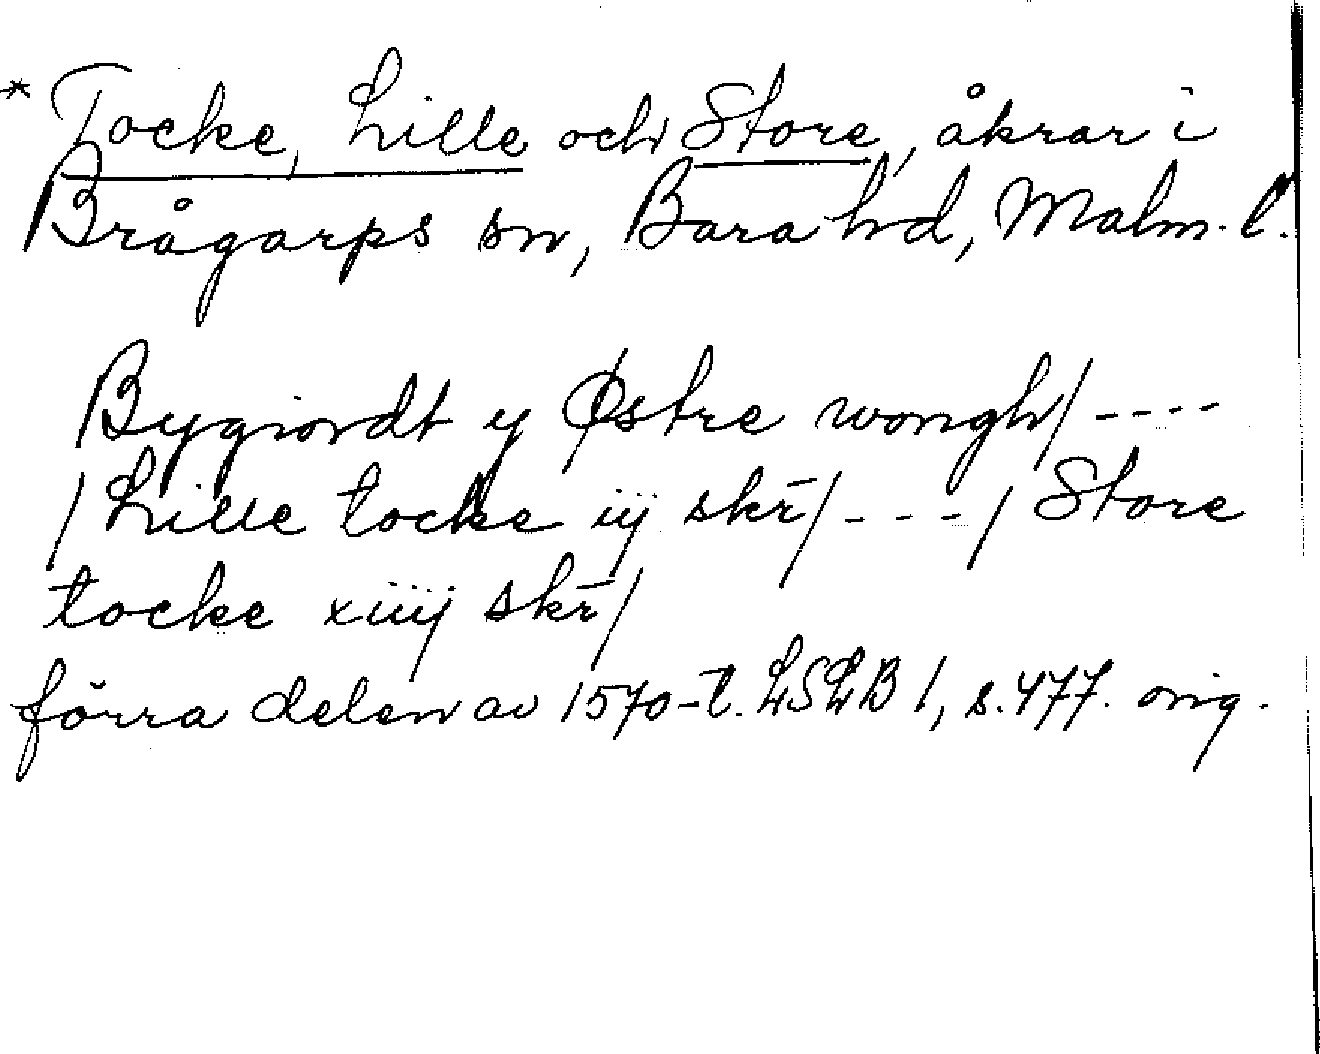 * Tocke, Lille och Store, åkrar i
Brågarps sn, Bara hd, Malm. l.
Bygiordt y Østre wongh/ ----
/Lille tocke iij skr̄/ ---/ Store
tocke xiiij skr̄/
förra delen av 1570-t. LSLB 1, s. 477. orig.